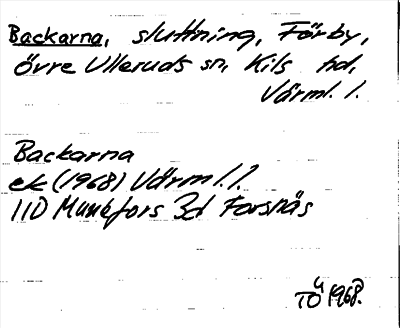 Backarna, sluttning, Färby,
övre Ulleruds sn, Kils hd,
Värml. l.
Backarna
ek (1968) Värml. l.
11D Munkfors 3d Forsnäs
TÖ 1968.